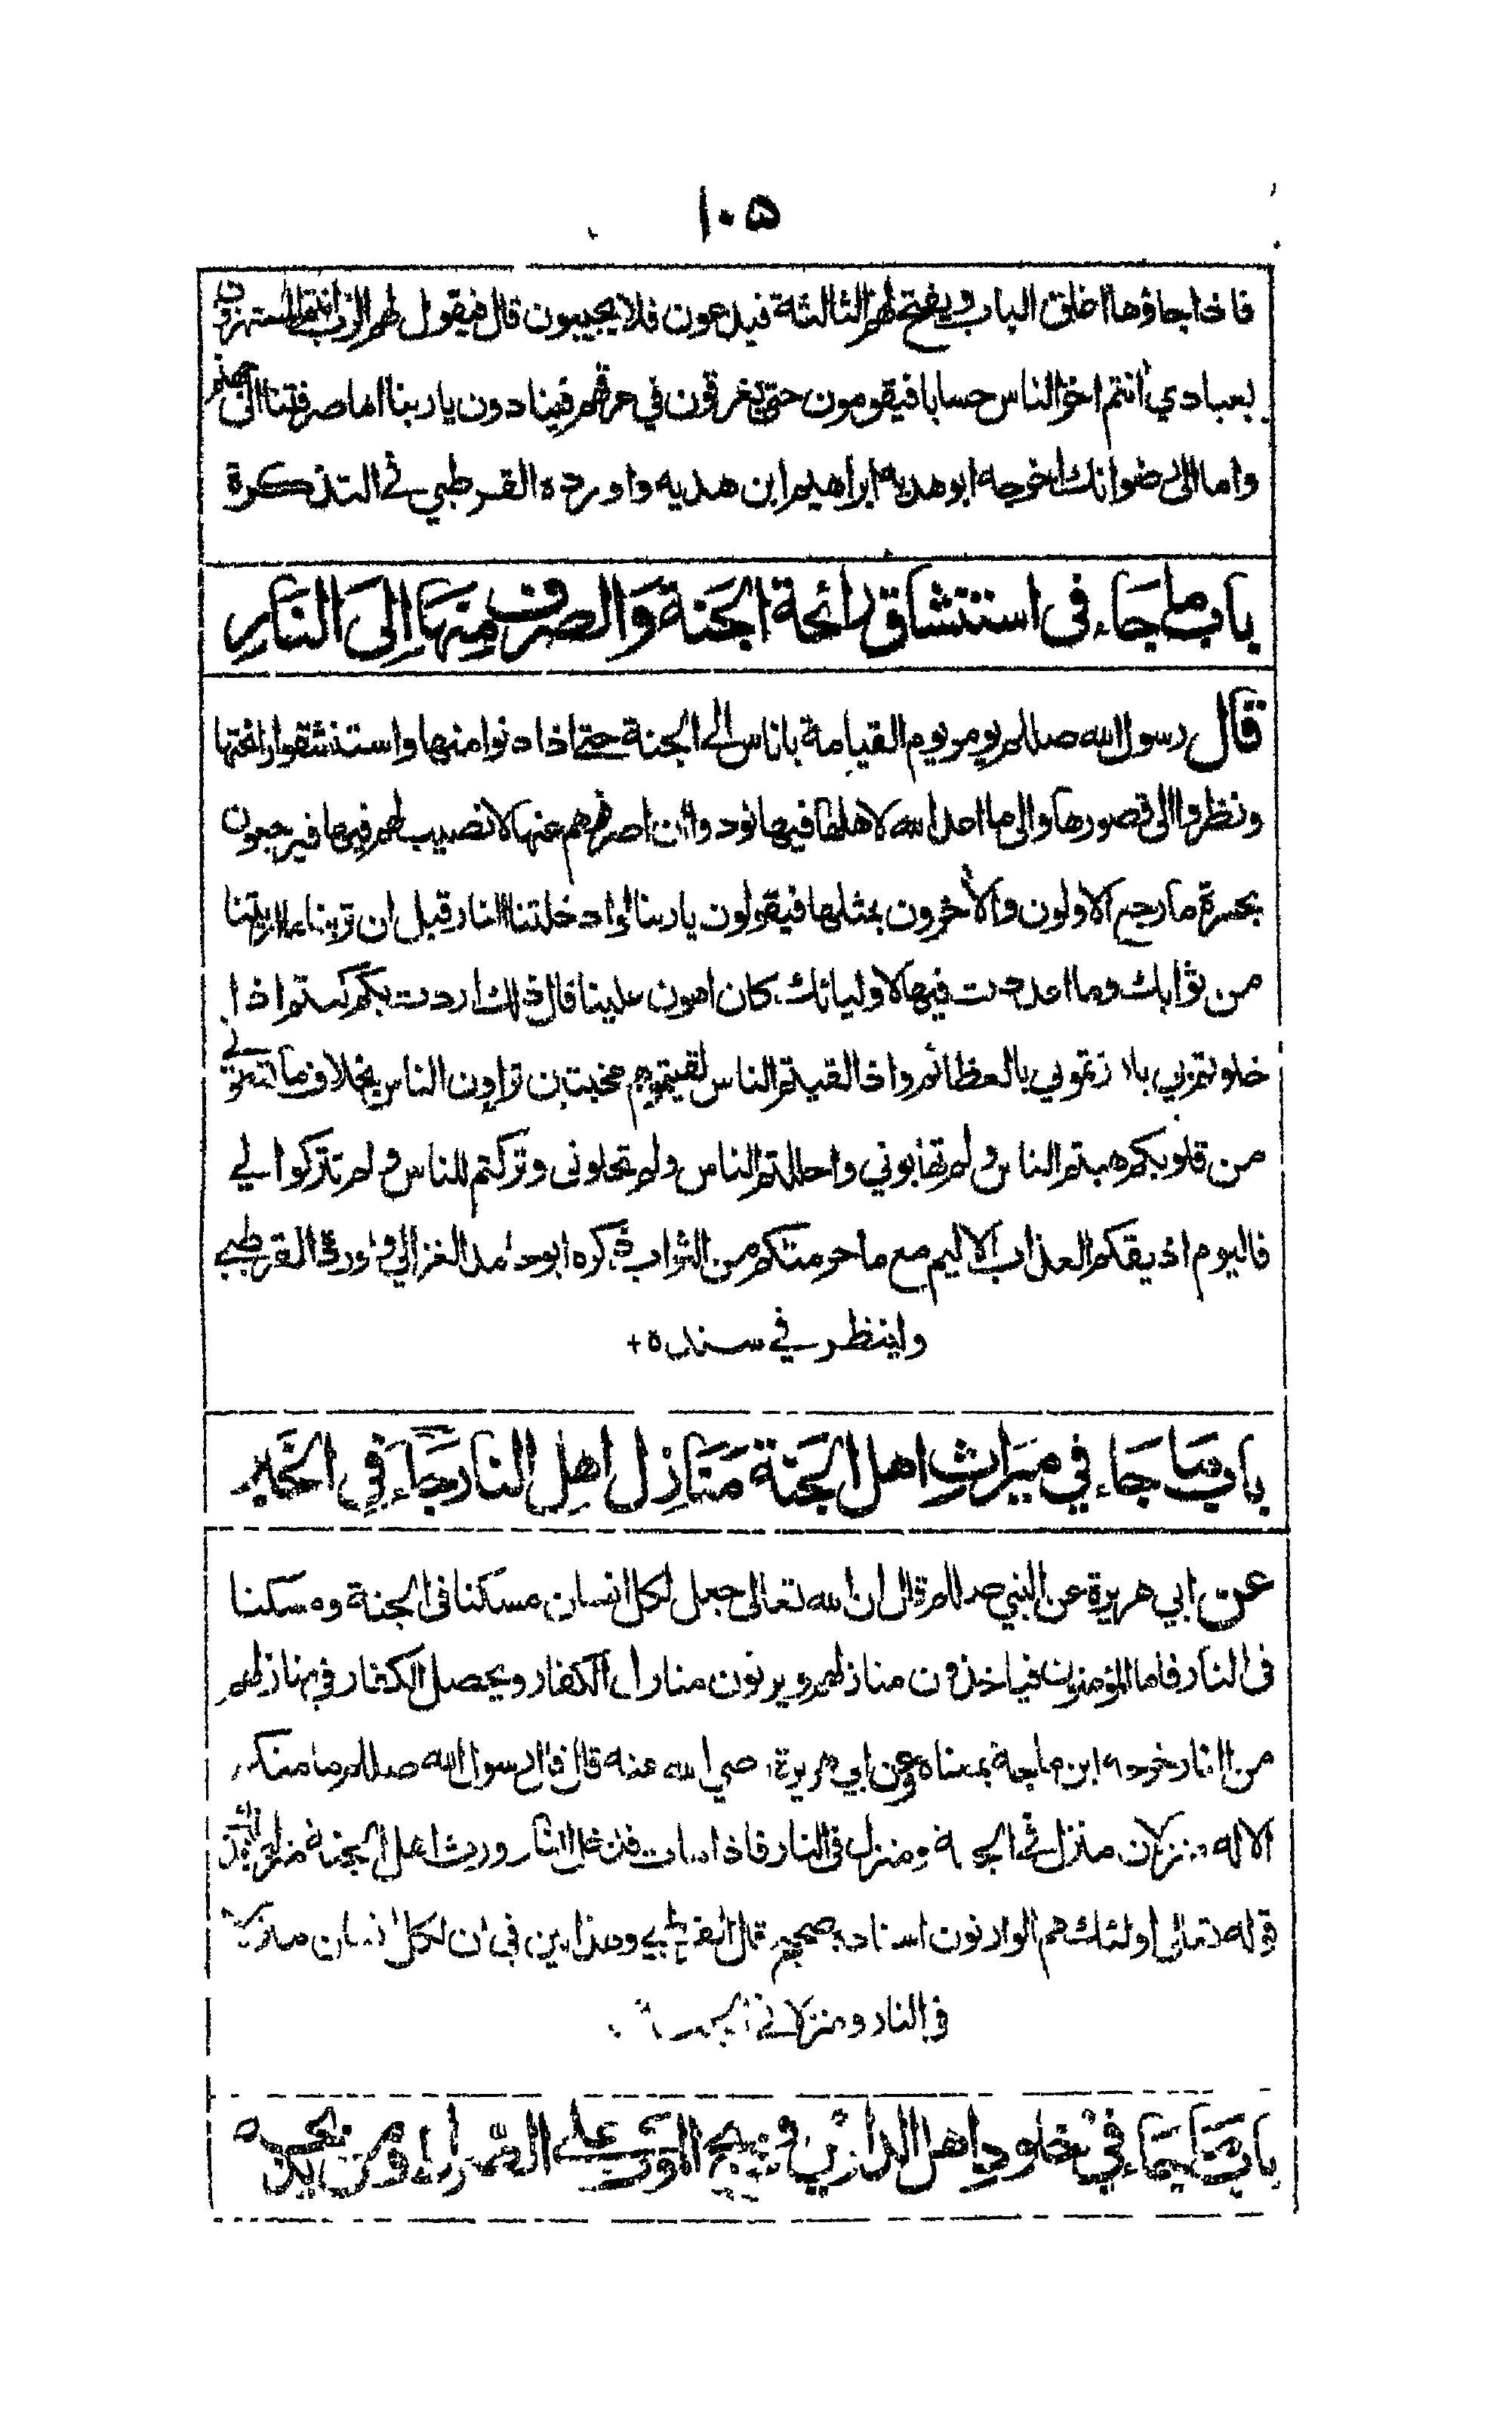 ١٠٥
فاذا جاؤها اغلق الباب ويفتح لهم الثالثة فيدعون فلا يجيبون قال فيقول لهم الرب انتم المستهزؤن
بعبادي انتم اخر الناس حسابا فيقومون حتى يغرقون في عرقهم فينادون يا ربنا اما صرفتنا الى جهنم
واما الى رضوانك اخرجه ابو هدبه ابراهيم ابن هدبه واورده القرطبي في التذكرة
باب ما جاء في استنشاق رائحة الجنة والصرف منها الى النار
قال رسول الله صللم يومر يوم القيامة بناس الى الجنة حتى اذا دنوا منها واستنشقوا رائحتها
ونظروا الى قصورها والى ما اعد الله لاهلها فيها نودوا ان اصرفوهم عنها لا نصيب لهم فيها فيرجعون
بحسرة ما رجع الاولون والآخرون بمثلها فيقولون يا ربنا لو ادخلتنا النار قبل ان ترينا ما اريتنا
من ثوابك وما اعددت فيها لاوليائك كان اهون علينا قال ذلك اردت بكم كنتم اذا
خلوتم بي بارزتموني بالعظائم واذا لقيتم الناس لقيتموهم مخبتين تراؤن الناس بخلاف ما تعطوني
من قلوبكم هبتم الناس ولم تهابوني واجللتم الناس ولم تجلوني وتركتم للناس ولم تتركوا لي
فاليوم اذيقكم العذاب الاليم مع ما حرمتكم من الثواب ذكره ابو حامد الغزالي واورده القرطبي
ولينظر في سنده +
باب ما جاء في ميراث اهل الجنة منازل اهل النار جاء في الخبر
عن ابي هريرة عن النبي صللم قال ان الله تعالى جعل لكل انسان مسكنا في الجنة ومسكنا
في النار فاما المؤمنون فياخذون منازلهم ويرثون منازل الكفار ويحصل الكفار في منازلهم
من النار خرجه ابن ماجة بمعناه وعن ابي هريرة رضي الله عنه قال قال رسول الله صللم ما منكم
الا له منزلان منزل في الجنة ومنزل في النار فاذا مات فدخل النار ورث اهل الجنة منزله فذلك
قوله تعالى اولئك هم الوارثون اسناده صحيح قال القرطبي وهذا بين في ان لكل انسان منزلا
في النار ومنزلا في الجنة
باب ما جاء في خلود اهل الدارين وذبح الموت على الصراط ومن يذبحه